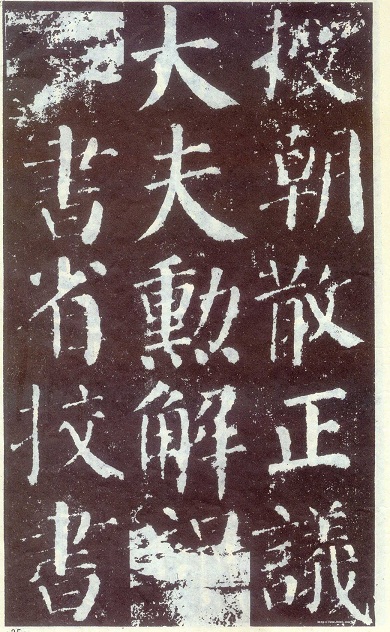 授朝散正議
大夫勳解
書省校書